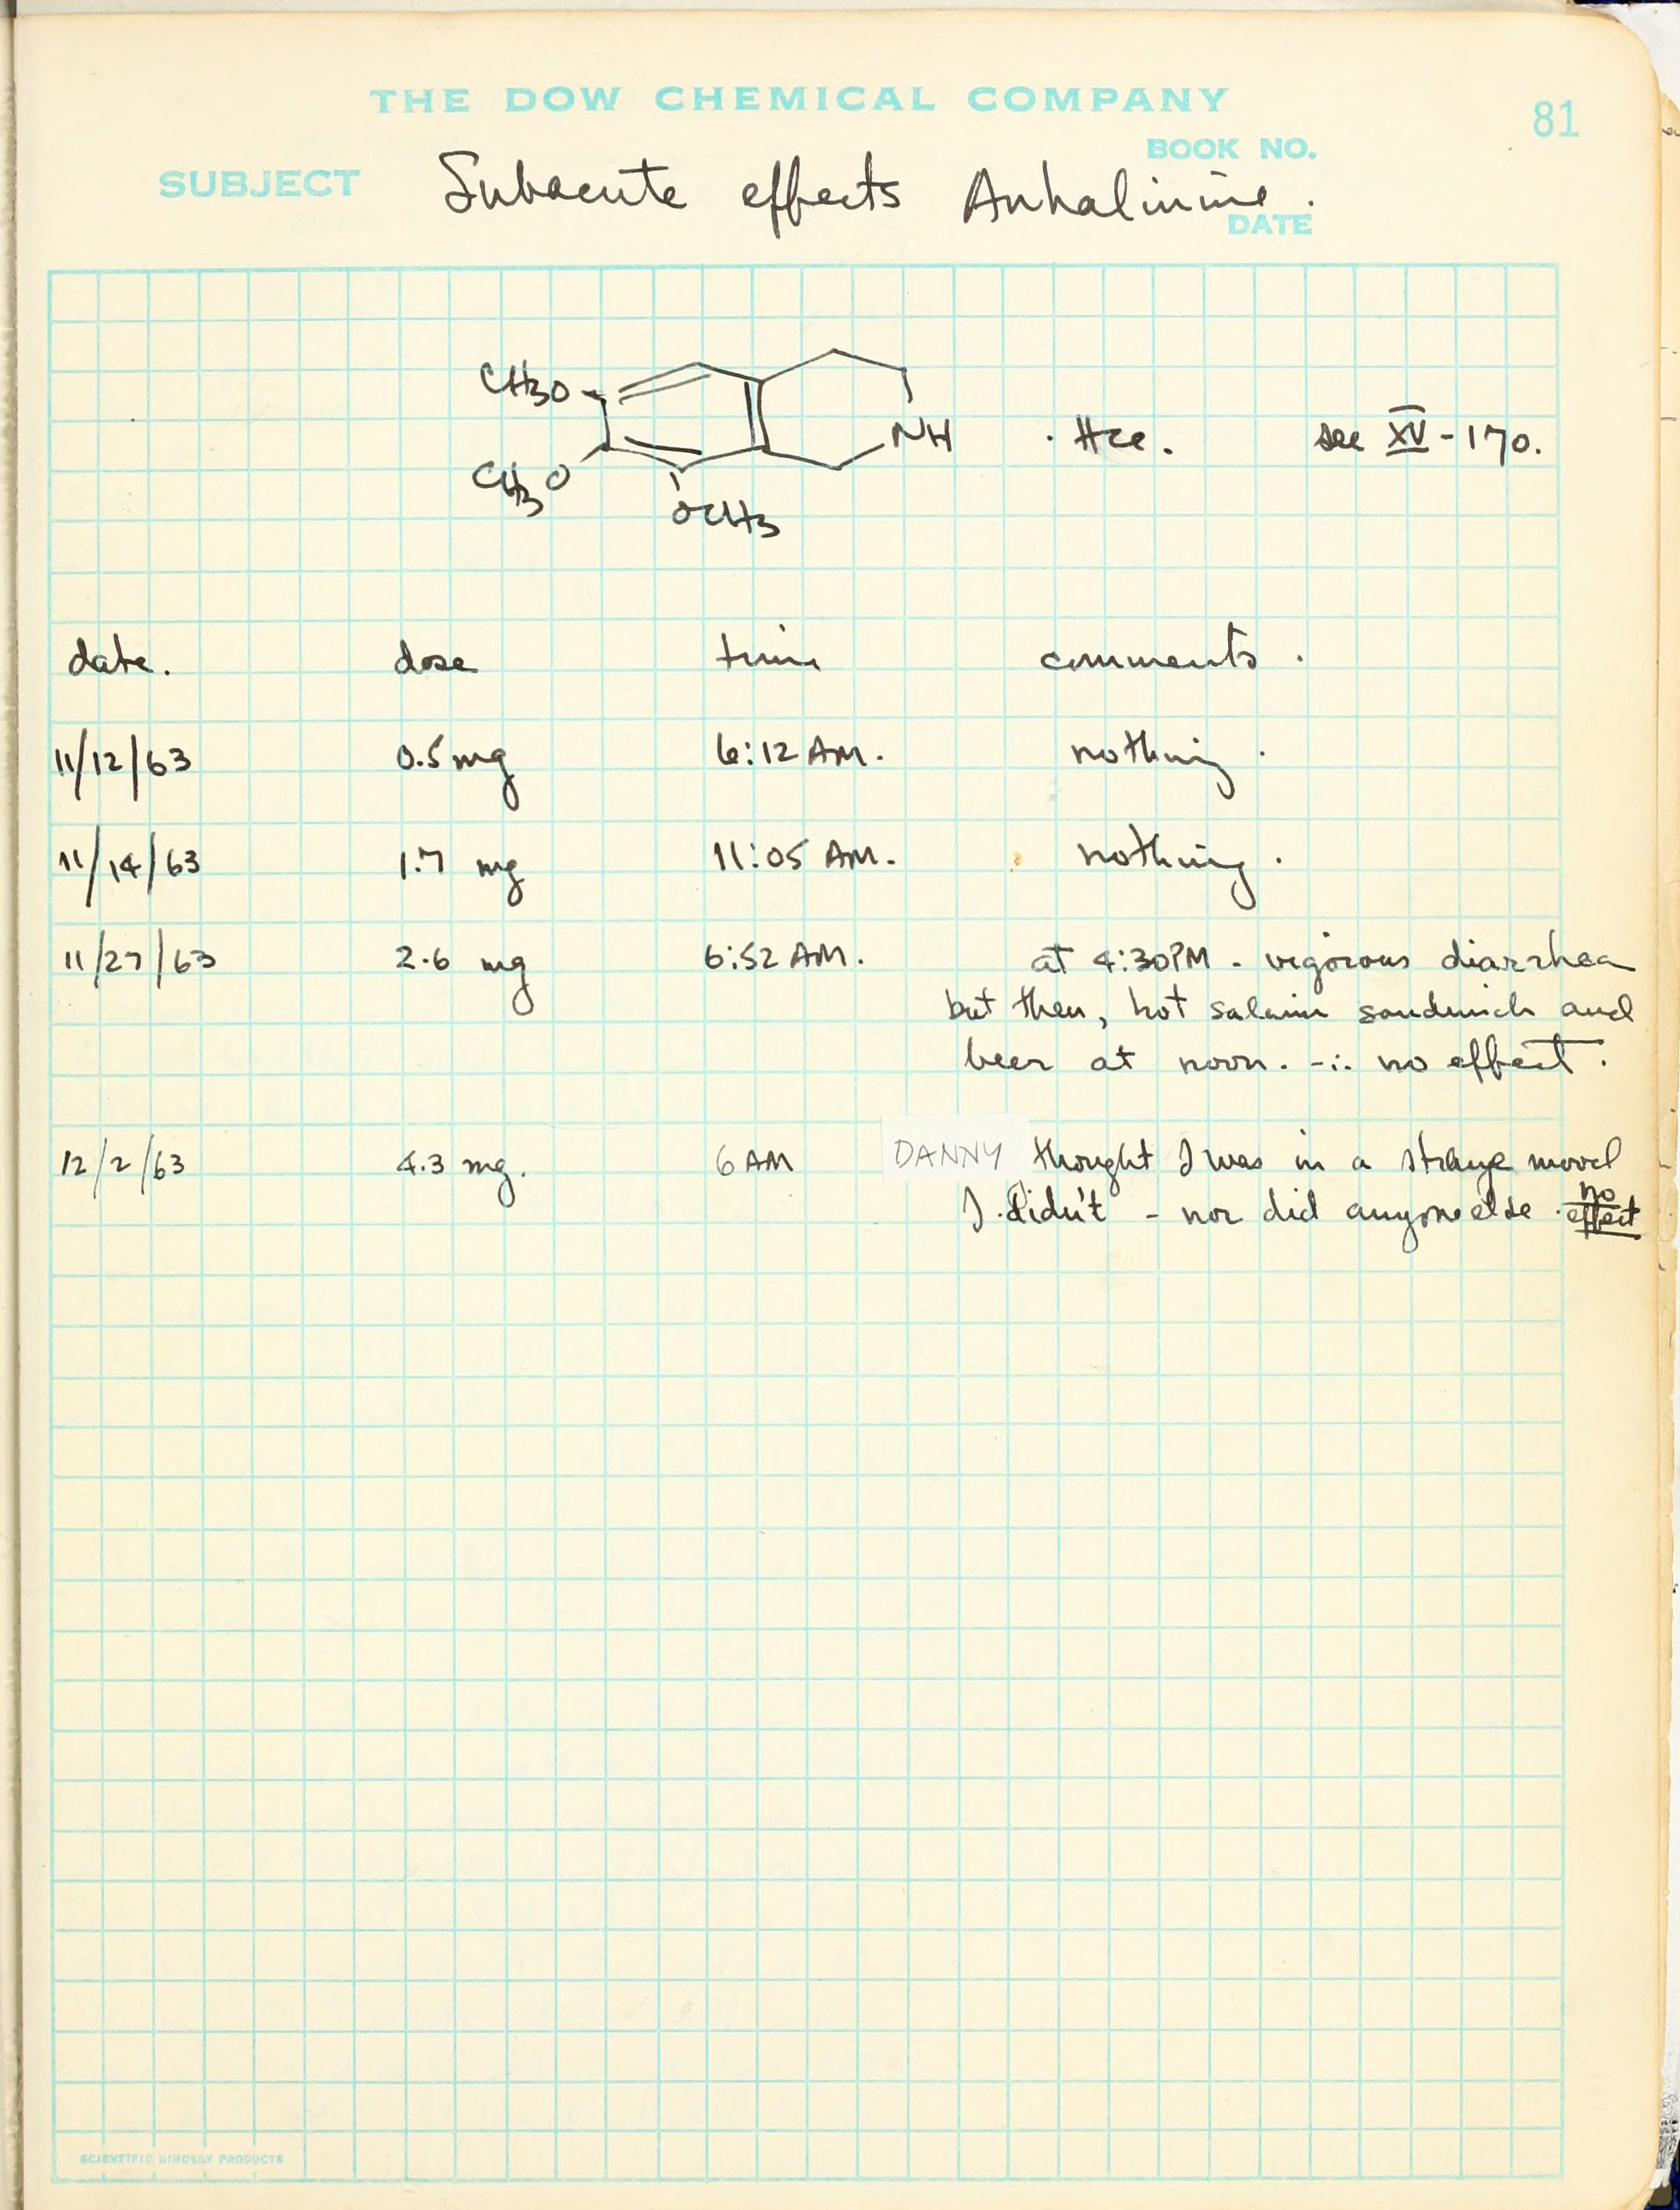 THE DOW CHEMICAL COMPANY
81
BOOK NO.
SUBJECT Subacute effects Anhalinine.
DATE
CH3O
NH · HCl. see XV-170.
CH3O
OCH3
date. dose time comments.
11/12/63 0.5 mg 6:12 AM. nothing.
11/14/63 1.7 mg 11:05 AM. nothing.
11/27/63 2.6 mg 6:52 AM. at 4:30PM - vigorous diarrhea
but then, hot salami sandwich and
beer at noon. -∴ no effect.
12/2/63 4.3 mg. 6 AM DANNY thought I was in a strange mood
I didn't - nor did anyone else. no effect
SCIENTIFIC BINDERY PRODUCTS